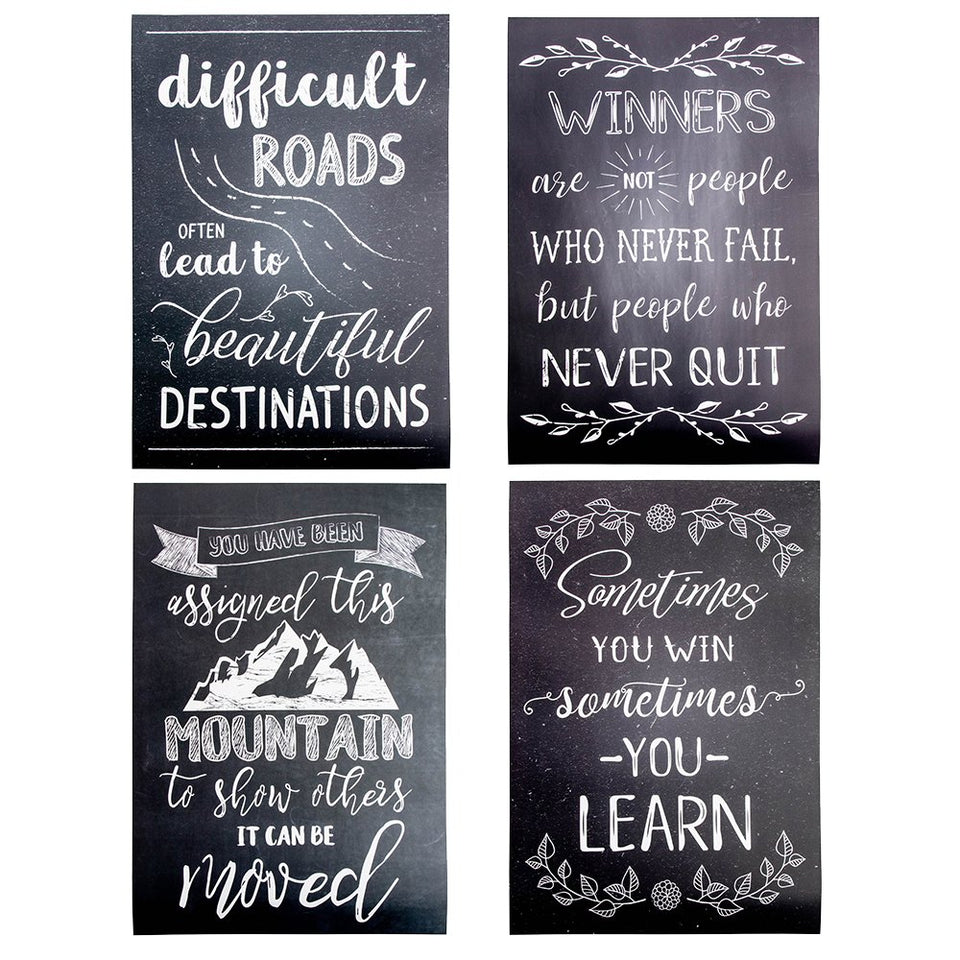 difficult
ROADS
OFTEN
lead to
beautiful
DESTINATIONS
WINNERS
are NOT people
WHO NEVER FAIL,
but people who
NEVER QUIT
YOU HAVE BEEN
assigned this
MOUNTAIN
to show others
IT CAN BE
moved
Sometimes
YOU WIN
sometimes
-YOU-
LEARN